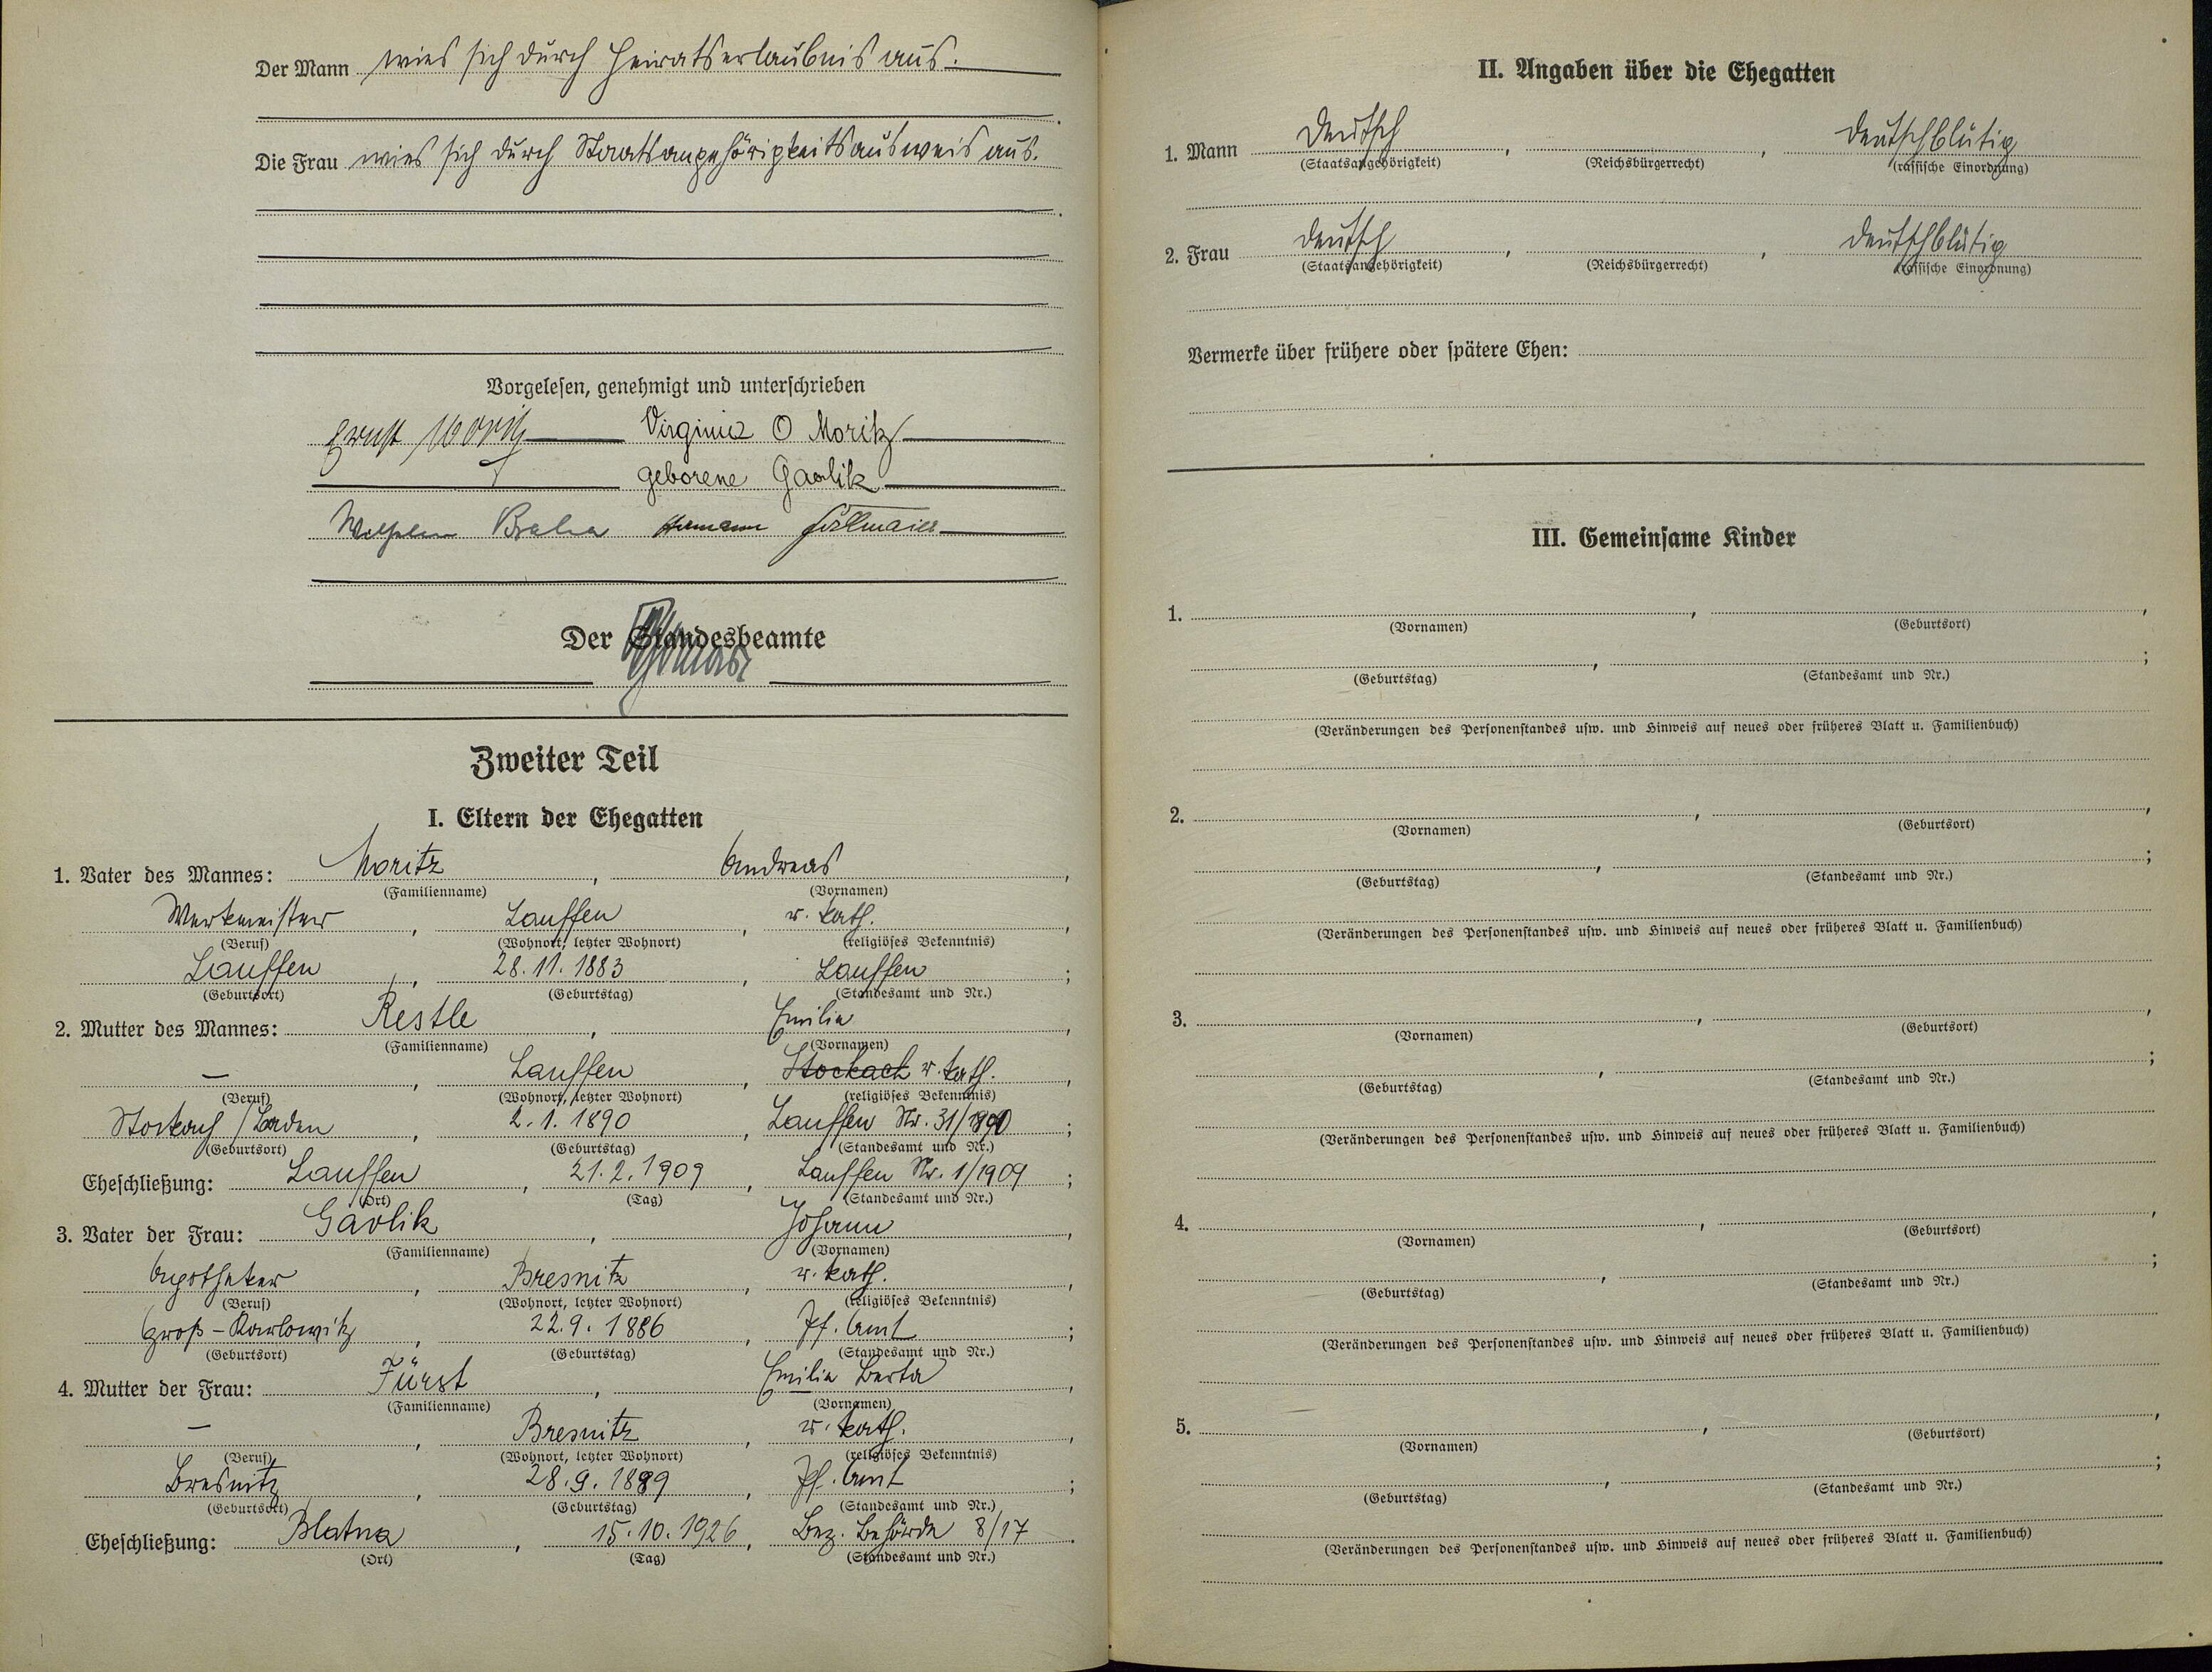 Der Mann wies sich durch Heiratserlaubnis aus.
Die Frau wies sich durch Staatsangehörigkeitsausweis aus.
Vorgelesen, genehmigt und unterschrieben
Ernst Moritz Virginia O Moritz
geborene Gavlik
Hermann
Der Standesbeamte
Zweiter Teil
I. Eltern der Ehegatten
1. Vater des Mannes: Moritz, Andreas,
(Familienname) (Vornamen)
Werkmeister, Lauffen, r. kath.,
(Beruf) (Wohnort, letzter Wohnort) (religiöses Bekenntnis)
Lauffen, 28.11.1883, Lauffen;
(Geburtsort) (Geburtstag) (Standesamt und Nr.)
2. Mutter des Mannes: Restle, Emilie,
(Familienname) (Vornamen)
—, Lauffen, Stockach r. kath.,
(Beruf) (Wohnort, letzter Wohnort) (religiöses Bekenntnis)
Stockach/Baden, 2.1.1890, Lauffen Nr. 31/1890;
(Geburtsort) (Geburtstag) (Standesamt und Nr.)
Eheschließung: Lauffen, 21.2.1909, Lauffen Nr. 1/1909;
(Ort) (Tag) (Standesamt und Nr.)
3. Vater der Frau: Gavlik, Johann,
(Familienname) (Vornamen)
Apotheker, Bresnitz, r. kath.,
(Beruf) (Wohnort, letzter Wohnort) (religiöses Bekenntnis)
Groß-Karlowitz, 22.9.1886, Pf. Amt;
(Geburtsort) (Geburtstag) (Standesamt und Nr.)
4. Mutter der Frau: Fürst, Emilie Berta,
(Familienname) (Vornamen)
—, Bresnitz, r. kath.,
(Beruf) (Wohnort, letzter Wohnort) (religiöses Bekenntnis)
Bresnitz, 28.9.1889, Pf. Amt;
(Geburtsort) (Geburtstag) (Standesamt und Nr.)
Eheschließung: Blatna, 15.10.1926, Bez. Behörde 8/17.
(Ort) (Tag) (Standesamt und Nr.)
II. Angaben über die Ehegatten
1. Mann deutsch, , deutschblütig
(Staatsangehörigkeit) (Reichsbürgerrecht) (rassische Einordnung)
2. Frau deutsch, , deutschblütig
(Staatsangehörigkeit) (Reichsbürgerrecht) (rassische Einordnung)
Vermerke über frühere oder spätere Ehen:
III. Gemeinsame Kinder
1. , ,
(Vornamen) (Geburtsort)
, ;
(Geburtstag) (Standesamt und Nr.)
(Veränderungen des Personenstandes usw. und Hinweis auf neues oder früheres Blatt u. Familienbuch)
2. , ,
(Vornamen) (Geburtsort)
, ;
(Geburtstag) (Standesamt und Nr.)
(Veränderungen des Personenstandes usw. und Hinweis auf neues oder früheres Blatt u. Familienbuch)
3. , ,
(Vornamen) (Geburtsort)
, ;
(Geburtstag) (Standesamt und Nr.)
(Veränderungen des Personenstandes usw. und Hinweis auf neues oder früheres Blatt u. Familienbuch)
4. , ,
(Vornamen) (Geburtsort)
, ;
(Geburtstag) (Standesamt und Nr.)
(Veränderungen des Personenstandes usw. und Hinweis auf neues oder früheres Blatt u. Familienbuch)
5. , ,
(Vornamen) (Geburtsort)
, ;
(Geburtstag) (Standesamt und Nr.)
(Veränderungen des Personenstandes usw. und Hinweis auf neues oder früheres Blatt u. Familienbuch)